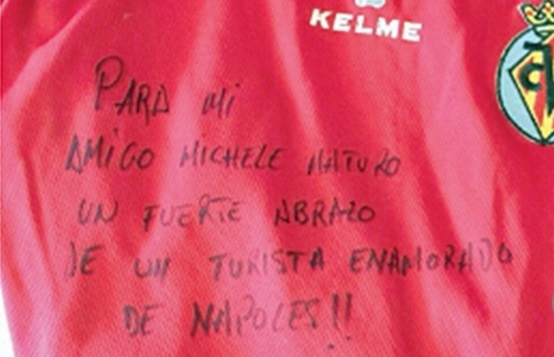 KELME
PARA MI
AMIGO MICHELE MATURO
UN FUERTE ABRAZO
DE UN TURISTA ENAMORADO
DE NAPOLES!!